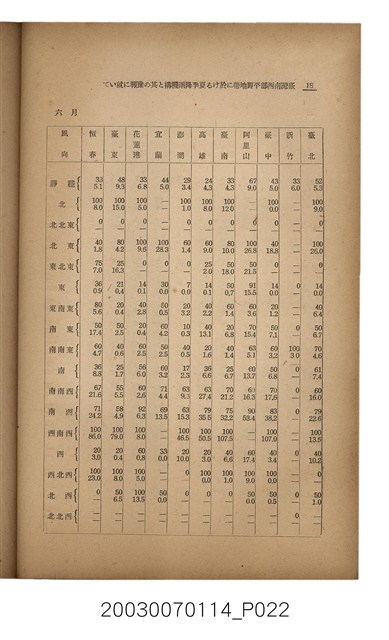 18 臺灣南西部平野地帶に於ける夏季降雨機構と其の豫報に就いて
六月
風向 恒春 臺東 花蓮港 宜蘭 澎湖 高雄 臺南 阿里山 臺中 新竹 臺北
靜穩 33 48 33 44 29 24 33 67 43 33 52
5.1 9.3 6.8 5.0 3.4 4.3 4.3 9.0 5.0 6.0 5.3
北 100 100 100 — 100 100 100 — 100 — 100
8.0 15.0 5.0 — 1.0 8.0 12.0 — 0.0 — 9.0
北北東 0 0 0 — 0 0 0 0 0 — 0
— — — — — — — — — — —
北東 40 80 100 100 60 60 80 100 40 — 100
1.8 4.2 9.6 28.3 1.4 9.0 10.0 26.8 18.8 — 26.0
東北東 75 25 0 0 0 25 50 50 0 — 0
7.0 16.3 — — — 2.0 18.0 21.5 — — —
東 36 21 14 30 7 14 50 91 14 0 14
0.9 0.4 0.1 0.0 0.0 0.1 0.7 15.5 0.0 — 0.0
東南東 80 20 40 50 20 40 60 60 20 — 40
5.6 0.4 2.8 0.5 3.2 2.2 1.4 3.6 1.2 — 6.4
南東 50 50 20 60 10 40 20 70 50 0 50
17.4 2.5 0.4 4.2 0.3 13.1 6.8 15.4 7.1 — 6.7
南南東 60 40 60 50 40 20 40 63 60 100 70
4.7 0.6 2.5 2.5 0.5 1.6 1.4 5.1 3.2 3.0 4.6
南 36 25 56 60 17 36 25 60 50 0 61
8.8 1.7 6.0 3.2 2.3 6.6 6.7 13.7 6.8 — 7.4
南南西 67 55 60 71 63 63 70 60 70 0 60
21.6 5.5 2.6 4.4 27.4 21.2 16.3 17.6 — 16.0
南西 71 58 92 69 63 79 75 90 83 0 79
24.2 4.9 6.3 13.5 15.3 35.5 32.2 53.4 38.2 — 22.6
西南西 100 100 100 — 100 100 100 — 100 — 100
86.0 79.0 8.0 — 46.5 50.5 107.5 — 107.0 — 13.5
西 20 20 60 33 20 20 40 60 40 0 40
3.0 0.4 0.8 0.0 10.0 3.0 6.6 17.4 3.4 — 10.2
西北西 100 100 100 — 0 100 100 100 100 — 0
23.0 8.0 5.0 — — 0.0 1.0 9.0 0.0 — —
北西 0 50 100 50 0 0 0 50 50 0 50
— 6.5 13.5 0.0 — — — 0.0 0.5 — 1.0
北北西 — — — — — — — — — 0 —
— — — — — — — — — — —
20030070114_P022